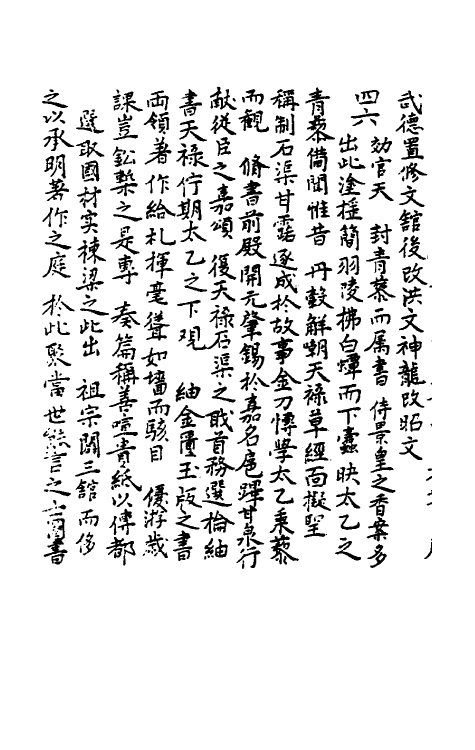 武德置修文舘後改洪文神龍改昭文
四六　効官天　封青藜而属書　侍景皇之香案多
出此塗摇簡羽陵拂白蟫而下蠹　映太乙之
青藜備聞惟昔　丹轂解嘲天禄草經面擬聖
稱制石渠甘露遂成於故事金刀愽學太乙乘藜
而觀　脩書前殿開元肇錫於嘉名扈蹕甘泉行
献從臣之嘉頌　復天禄石渠之職首務選掄紬
書天禄佇期太乙之下观　紬金匱玉版之書
両領著作給札揮毫聳如墻而駭目　優游歲
課豈鈆槧之是專　奏篇稱善喧貴紙以傳都
選取國材实棟梁之此出　祖宗闢三舘而侈
之以承明著作之庭　於此聚當世能言之士圖書